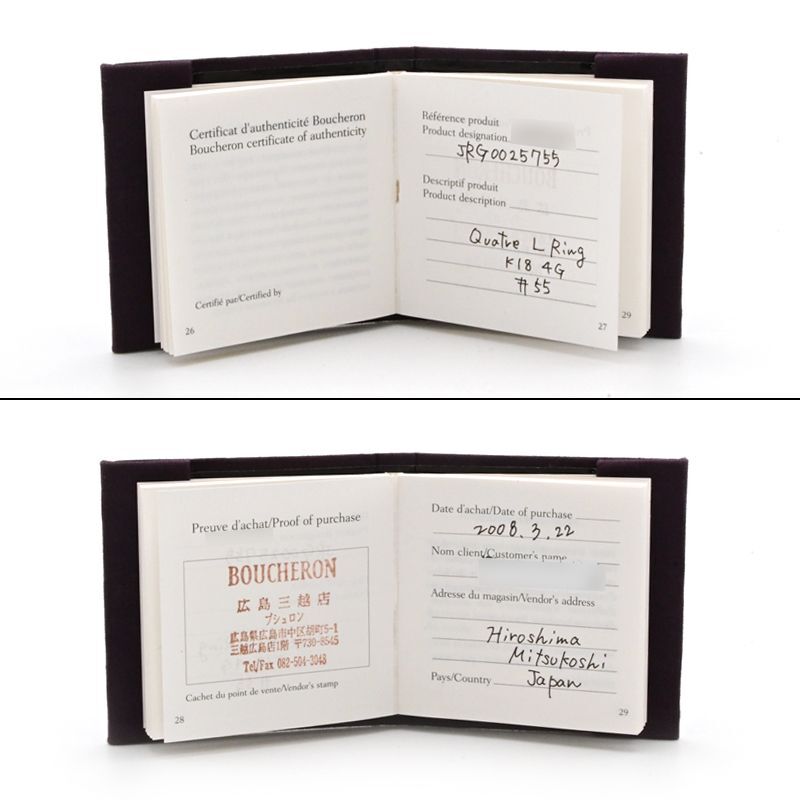 Certificat d'authenticité Boucheron
Boucheron certificate of authenticity
Certifié par/Certified by
26
Référence produit
Product designation
JRG0025755
Descriptif produit
Product description
Quatre L Ring
K18 4G
#55
27
29
Preuve d'achat/Proof of purchase
BOUCHERON
広島三越店
ブシュロン
広島県広島市中区胡町5-1
三越広島店1階 〒730-8545
Tel/Fax 082-504-3048
Cachet du point de vente/Vendor's stamp
28
Date d'achat/Date of purchase
2008.3.22
Nom client/Customer's name
Adresse du magasin/Vendor's address
Hiroshima
Mitsukoshi
Pays/Country Japan
29